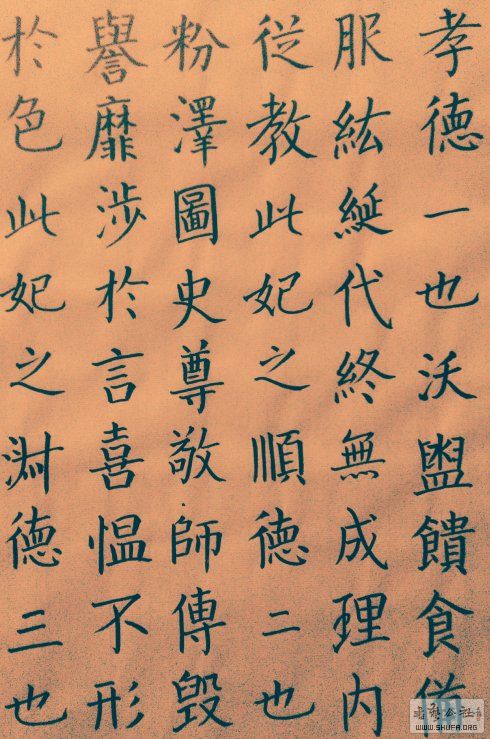 孝德一也沃盥饋食
服紘綖代終無成理内
従教此妃之順德二也
粉澤圖史尊敬師傅毀
譽靡涉於言喜慍不形
於色此妃之淑德三也
WWW.SHUFA.ORG